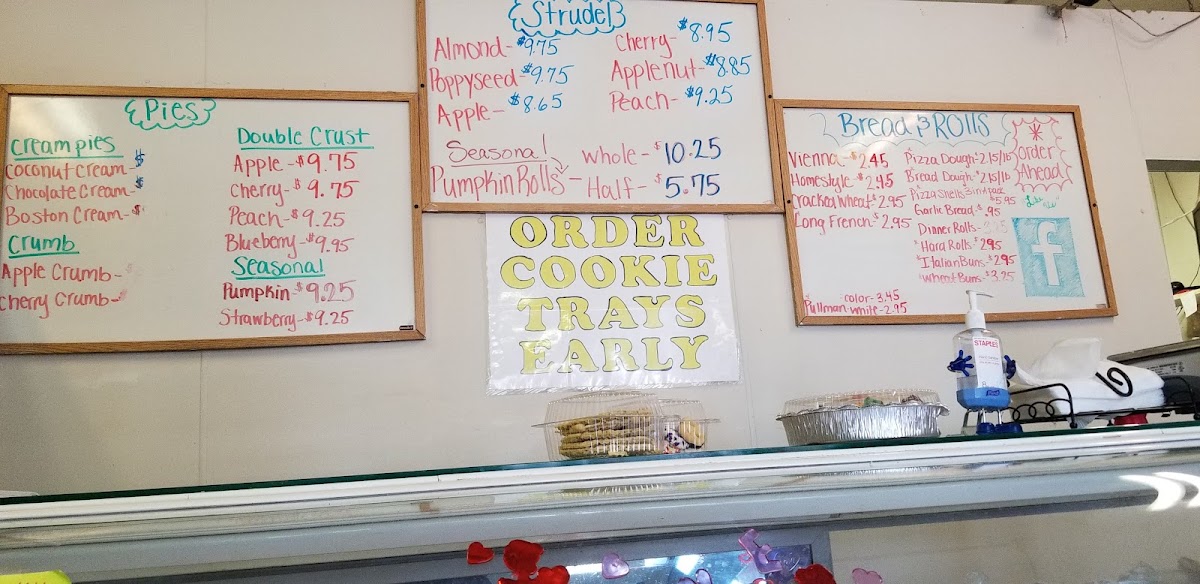 Pies
Cream pies
Coconut Cream - $
Chocolate Cream - $
Boston Cream - $
Crumb
Apple Crumb - $
Cherry Crumb - $
Double Crust
Apple - $9.75
Cherry - $9.75
Peach - $9.25
Blueberry - $9.95
Seasonal
Pumpkin - $9.25
Strawberry - $9.25
Strudel
Almond - $9.75
Poppyseed - $9.75
Apple - $8.65
Cherry - $8.95
Applenut - $8.85
Peach - $9.25
Seasonal
Pumpkin Rolls -
Whole - $10.25
Half - $5.75
ORDER
COOKIE
TRAYS
EARLY
Bread & ROLLS
Vienna - $2.45
Homestyle - $2.45
Cracked Wheat $2.95
Long French - $2.95
Pizza Dough -
Bread Dough -
Pizza Shells 3 in
$5.95
Garlic Bread - $.95
Dinner Rolls -
Hard Rolls $2.95
Italian Buns - $2.95
Wheat Buns - $3.25
Pullman
color - 3.45
white - 2.95
Order
Ahead
f
STAPLES